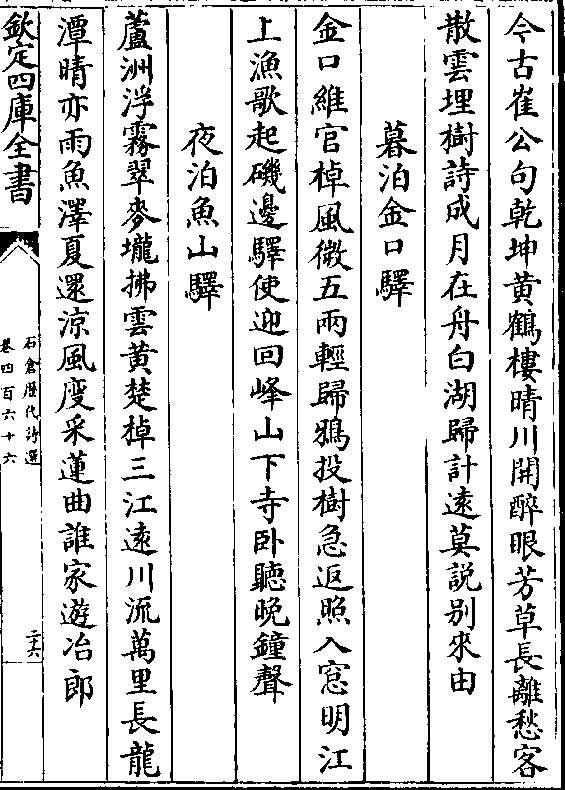 今古崔公句乾坤黄鶴樓晴川開醉眼芳草長離愁客
散雲埋樹詩成月在舟白湖歸計遠莫説别來由
暮泊金口驛
金口維官棹風微五兩輕歸鴉投樹急返照入窓明江
上漁歌起磯邊驛使迎回峰山下寺卧聽晩鐘聲
夜泊魚山驛
蘆洲浮霧翠麥壠拂雲黄楚棹三江遠川流萬里長龍
潭晴亦雨魚澤夏還涼風度采蓮曲誰家遊冶郎
欽定四庫全書
石倉歴代詩選
卷四百六十六
二十六